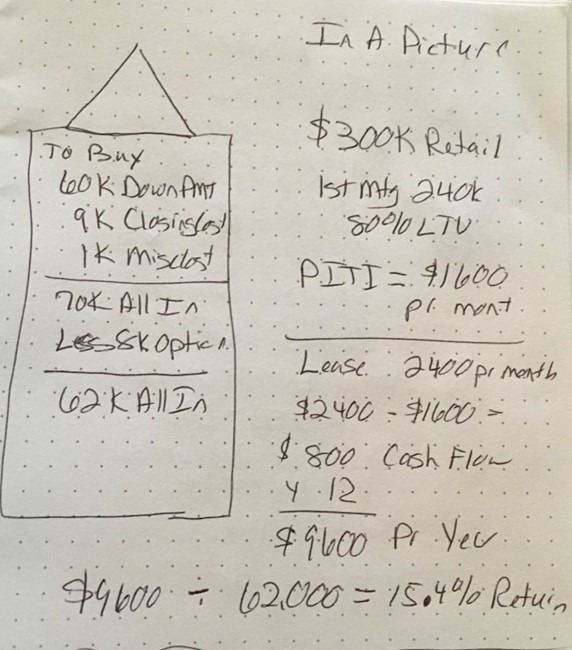 In A Picture
To Buy
60K Down Pmt
9K Closing Cost
1K Misc Cost
70K All In
Less 8K Option
62K All In
$300K Retail
1st Mtg 240k
80% LTV
PITI = $1600
pr. mont
Lease 2400 pr month
$2400 - $1600 =
$ 800 Cash Flow
x 12
$9600 Pr Year
$9600 ÷ 62,000 = 15.4% Return